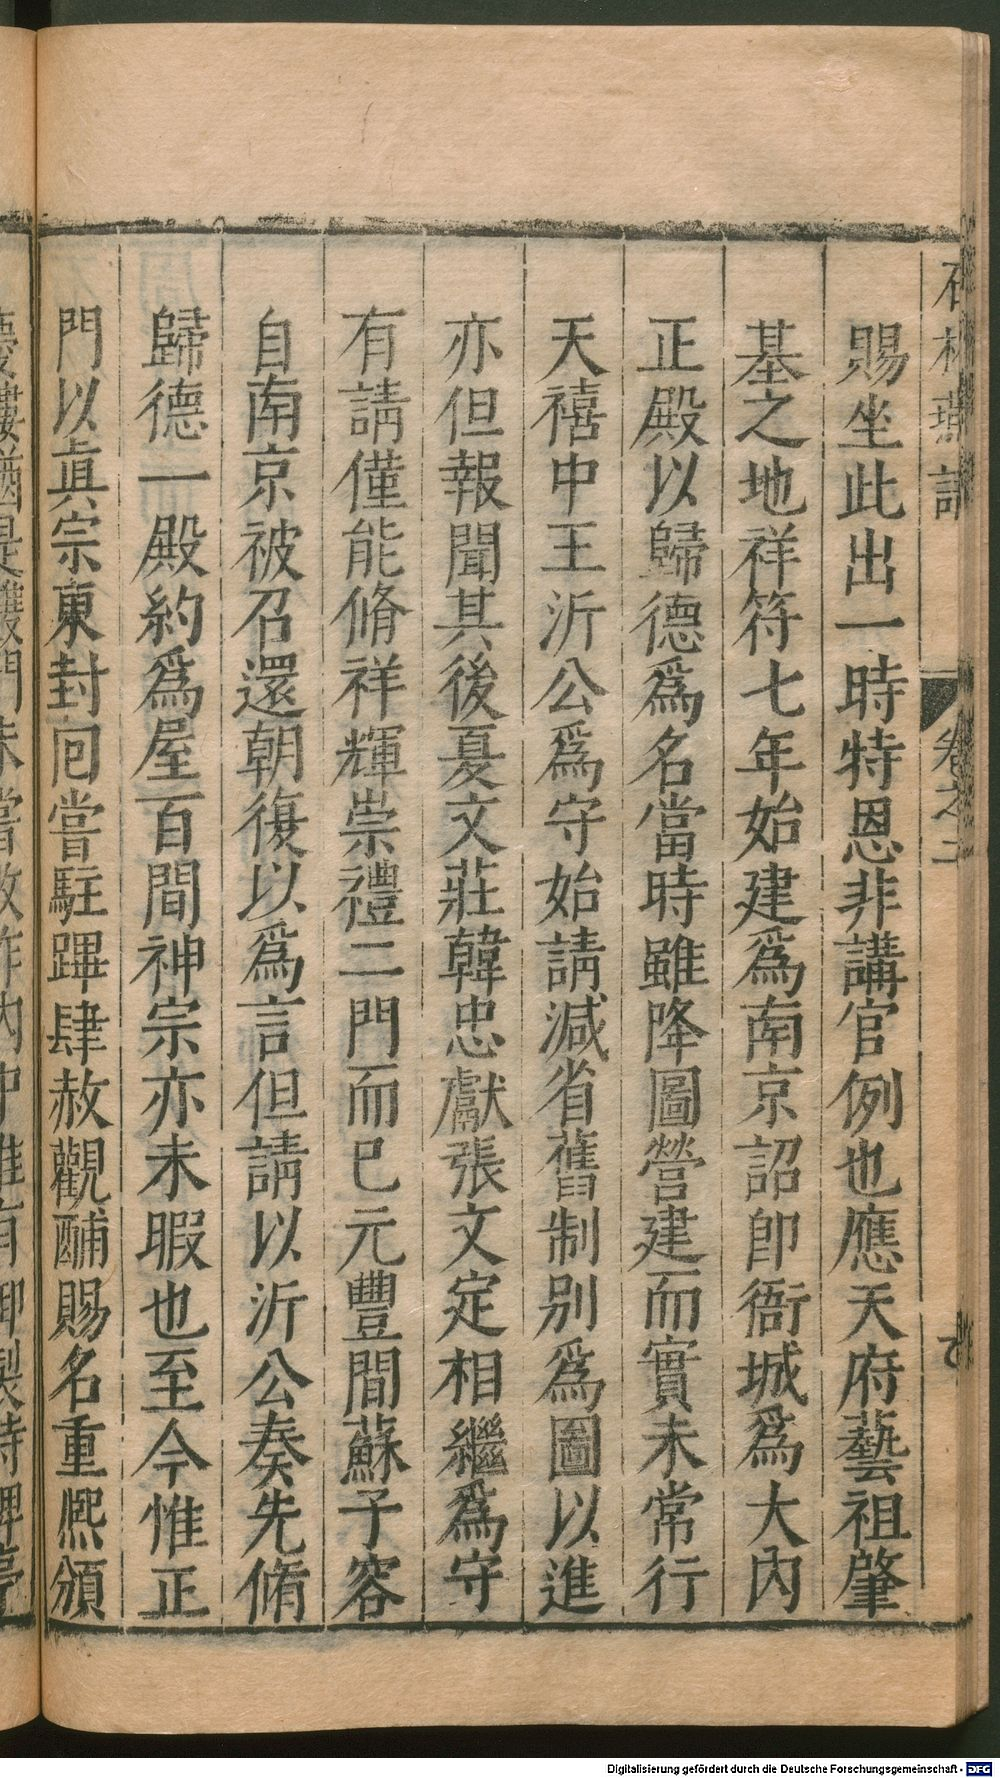 石林燕語 卷之二
賜坐此出一時特恩非講官例也應天府藝祖肇
基之地祥符七年始建爲南京詔卽衙城爲大內
正殿以歸德爲名當時雖降圖營建而實未常行
天禧中王沂公爲守始請減省舊制别爲圖以進
亦但報聞其後夏文莊韓忠獻張文定相繼爲守
有請僅能脩祥輝崇禮二門而已元豐間蘇子容
自南京被召還朝復以爲言但請以沂公奏先脩
歸德一殿約爲屋百間神宗亦未暇也至今惟正
門以眞宗東封囘嘗駐蹕肆赦觀酺賜名重熈頒
Digitalisierung gefördert durch die Deutsche Forschungsgemeinschaft - DFG